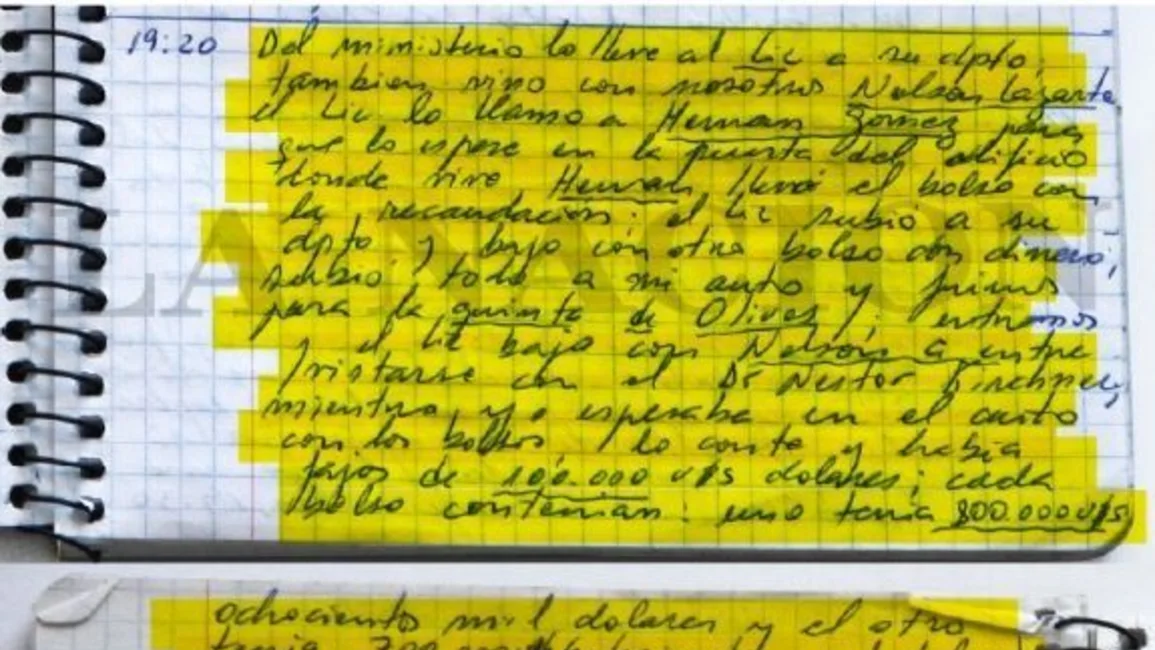 19:20 Del ministerio lo lleve al Lic a su dpto,
tambien vino con nosotros Nelson Lazarte
el Lic lo llamo a Hernan Gomez para
que lo espere en la puerta del edificio
donde vive, Hernan llevó el bolso con
la recaudacion; el Lic subió a su
dpto y bajo con otro bolso con dinero;
subió todo a mi auto y fuimos
para la quinta de Olivos; entramos
y el Lic bajo con Nelson a entre
/vistarse con el Dr Nestor Kirchner,
mientras yo esperaba en el auto
con los bolsos, lo conte y habia
fajos de 100.000 U$S dolares; cada
bolso contenian: uno tenia 800.000 U$S
ochocientos mil dolares y el otro
tenia 700
LA NACION